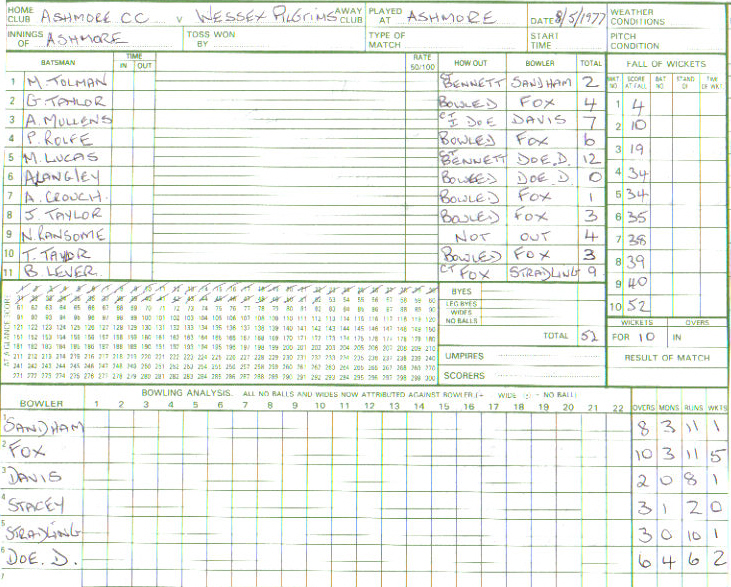 HOME CLUB ASHMORE CC v WESSEX PILGRIMS AWAY CLUB PLAYED AT ASHMORE DATE 8/5/1977 WEATHER CONDITIONS
INNINGS OF ASHMORE TOSS WON BY TYPE OF MATCH START TIME PITCH CONDITION
BATSMAN TIME IN OUT RATE 50/100 HOW OUT BOWLER TOTAL
1 M. TOLMAN CT BENNETT SANDHAM 2
2 G. TAYLOR BOWLED FOX 4
3 A. MULLENS CT I DOE DAVIS 7
4 P. ROLFE BOWLED FOX 6
5 M. LUCAS CT BENNETT DOE. D. 12
6 A LANGLEY BOWLED DOE D. 0
7 A. CROUCH. BOWLED FOX 1
8 J. TAYLOR BOWLED FOX 3
9 N. RANSOME NOT OUT 4
10 T. TAYLOR BOWLED FOX 3
11 B LEVER. CT FOX STRADLING 9
FALL OF WICKETS
WKT NO SCORE AT FALL BAT NO STAND OF TIME OF WKT
1 4
2 10
3 19
4 34
5 34
6 35
7 38
8 39
9 40
10 52
AT A GLANCE SCORE
61 62 63 64 65 66 67 68 69 70 71 72 73 74 75 76 77 78 79 80 81 82 83 84 85 86 87 88 89 90
91 92 93 94 95 96 97 98 99 100 101 102 103 104 105 106 107 108 109 110 111 112 113 114 115 116 117 118 119 120
121 122 123 124 125 126 127 128 129 130 131 132 133 134 135 136 137 138 139 140 141 142 143 144 145 146 147 148 149 150
151 152 153 154 155 156 157 158 159 160 161 162 163 164 165 166 167 168 169 170 171 172 173 174 175 176 177 178 179 180
181 182 183 184 185 186 187 188 189 190 191 192 193 194 195 196 197 198 199 200 201 202 203 204 205 206 207 208 209 210
211 212 213 214 215 216 217 218 219 220 221 222 223 224 225 226 227 228 229 230 231 232 233 234 235 236 237 238 239 240
241 242 243 244 245 246 247 248 249 250 251 252 253 254 255 256 257 258 259 260 261 262 263 264 265 266 267 268 269 270
271 272 273 274 275 276 277 278 279 280 281 282 283 284 285 286 287 288 289 290 291 292 293 294 295 296 297 298 299 300
BYES
LEG BYES
WIDES
NO BALLS
TOTAL 52
UMPIRES
SCORERS
WICKETS OVERS
FOR 10 IN
RESULT OF MATCH
BOWLING ANALYSIS. ALL NO BALLS AND WIDES NOW ATTRIBUTED AGAINST BOWLER (+ WIDE ⊙ = NO BALL)
BOWLER 1 2 3 4 5 6 7 8 9 10 11 12 13 14 15 16 17 18 19 20 21 22 OVERS MDNS RUNS WKTS
1 SANDHAM 8 3 11 1
2 FOX 10 3 11 5
3 DAVIS 2 0 8 1
4 STACEY 3 1 2 0
5 STRADLING 3 0 10 1
6 DOE. D. 6 4 6 2
7